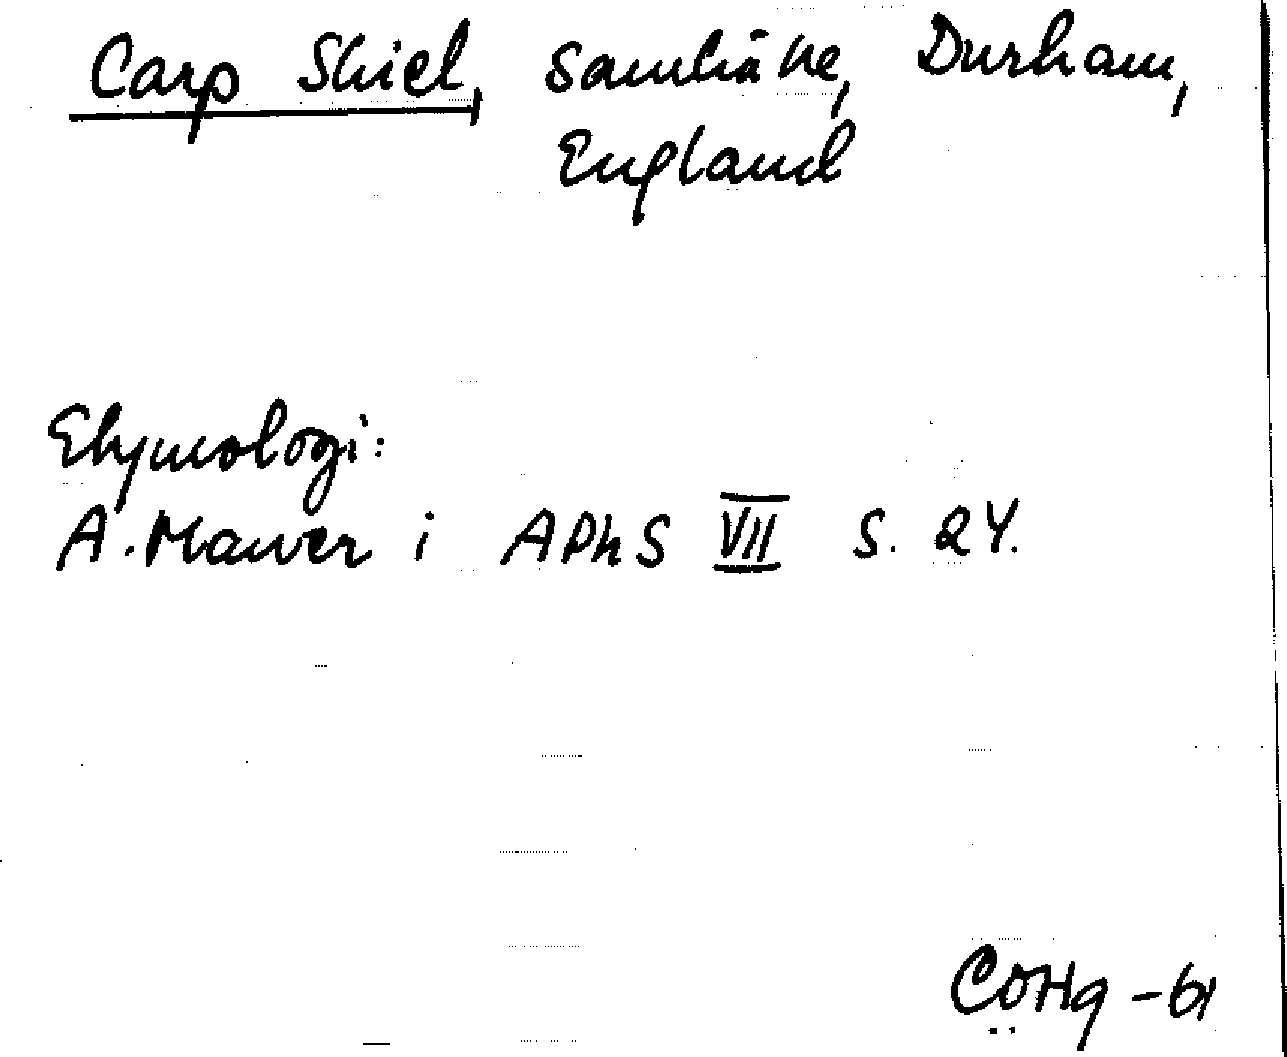 Carp Shiel, Samhälle, Durham,
England
Etymologi:
A. Mawer i APhS VII S. 24.
COHg -61